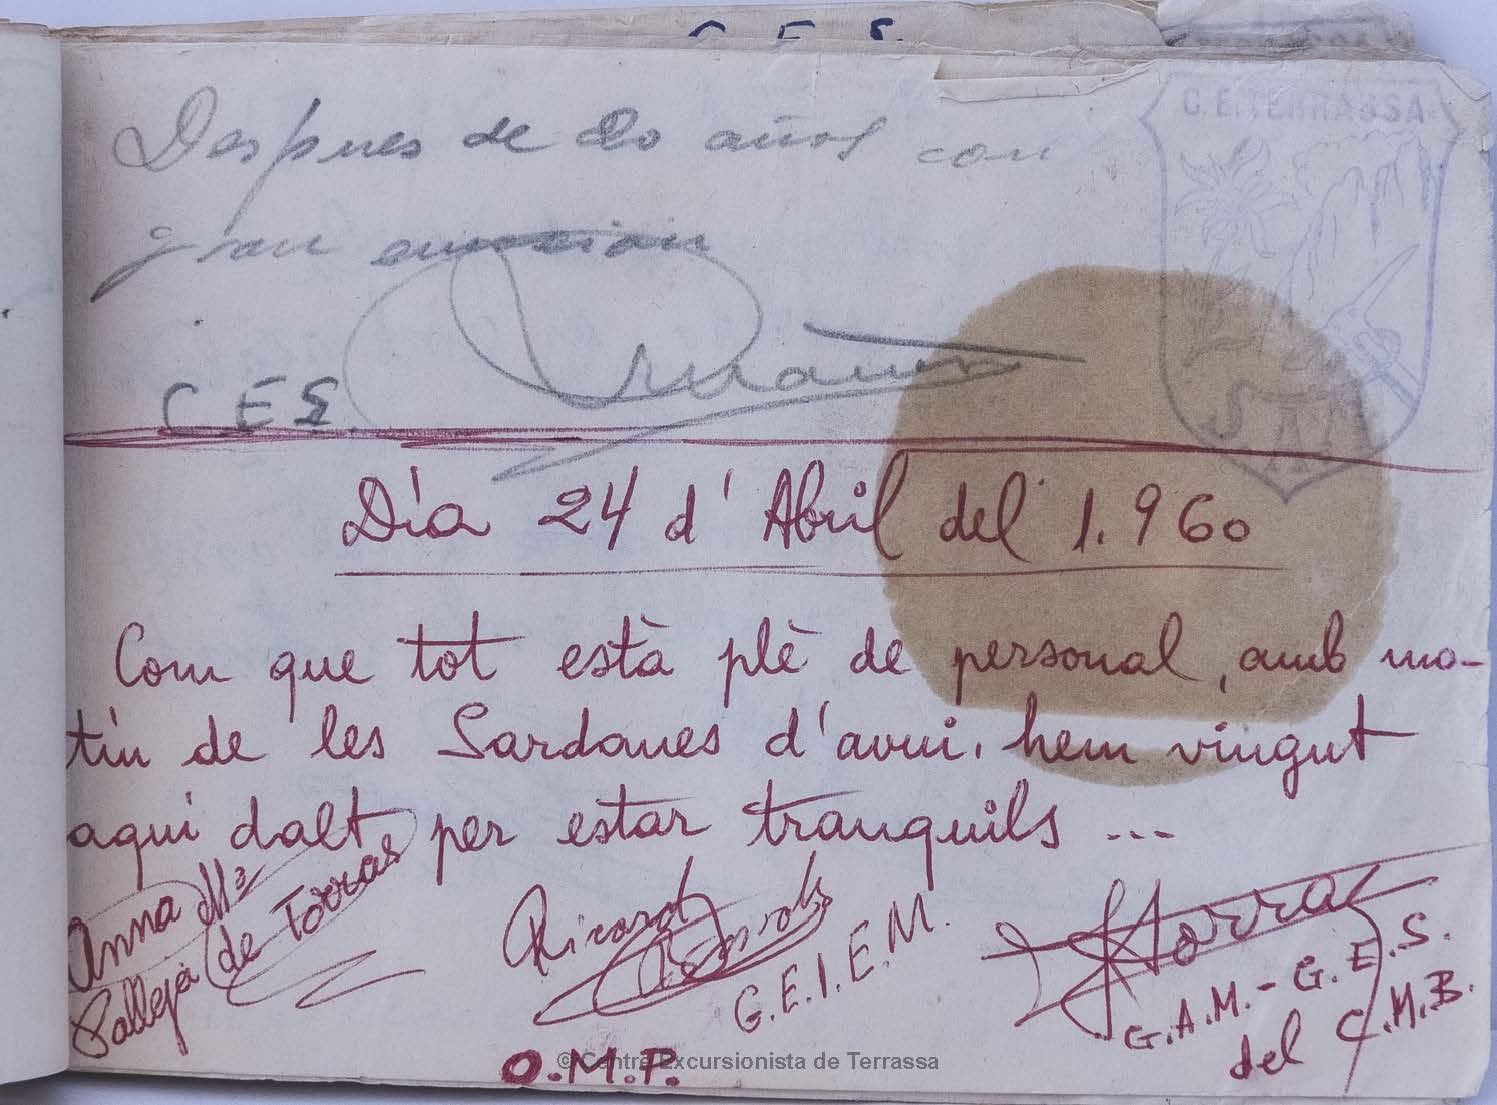 C. E. S.
C. E. TERRASSA
Despues de 20 años con
gran emocion
C E S
Día 24 d'Abril del 1.960
Com que tot està plè de personal, amb mo-
tiu de les Sardanes d'avui, hem vingut
aqui dalt per estar tranquils ...
Anna Mª
Pallejà de Torras
Ricard
G.E.I.E.M.
Torras
G.A.M.-G.E.S.
del C.M.B.
O.M.P.
© Centre Excursionista de Terrassa